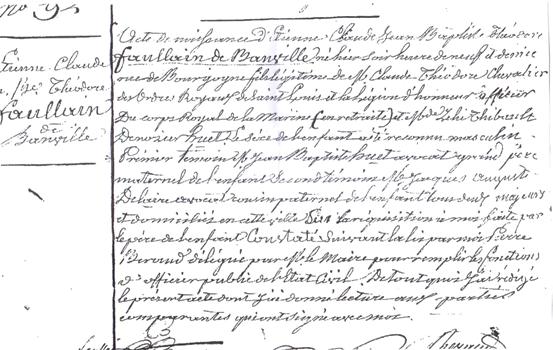 No 95
Etienne Claude
Théodore
faullain
de
Banville
Acte de naissance d'Etienne Claude Jean Baptiste Théodore
faullain de Banville né hier soir heure de neuf et demie
de Bourgogne fils légitime de M. Claude Théodore Chevalier
des Ordres Royaux de Saint Louis et la légion d'honneur officier
du corps Royal de la Marine (en retraite) et Mde Zélie Thibault
huet Le sexe de l'enfant a été reconnu masculin
Premier temoin M. Jean Baptiste huet avocat grand père
maternel de l'enfant Second temoin M. Jacques auguste
avocat cousin paternel de l'enfant tous deux majeurs
et domiciliés en cette ville Sur la réquisition à moi faite par
le père de l'enfant Constaté Suivant la loi par moi Pierre
délégué par M. le Maire pour remplir les fonctions
d'officier public de l'Etat Civil De tout quoi j'ai rédigé
le présent acte dont j'ai donné lecture aux parties
comparantes qui ont signé avec moi